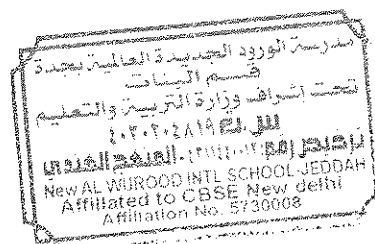 مدرسة الورود الجديدة العالمية بجدة
قسم البنات
تحت إشراف وزارة التربية والتعليم
س.ت ٤٠٣٠٢٠٢٤٨١٩
ترخيص رقم
New AL WUROOD INTL SCHOOL-JEDDAH
Affiliated to CBSE New delhi
Affiliation No. 5730008